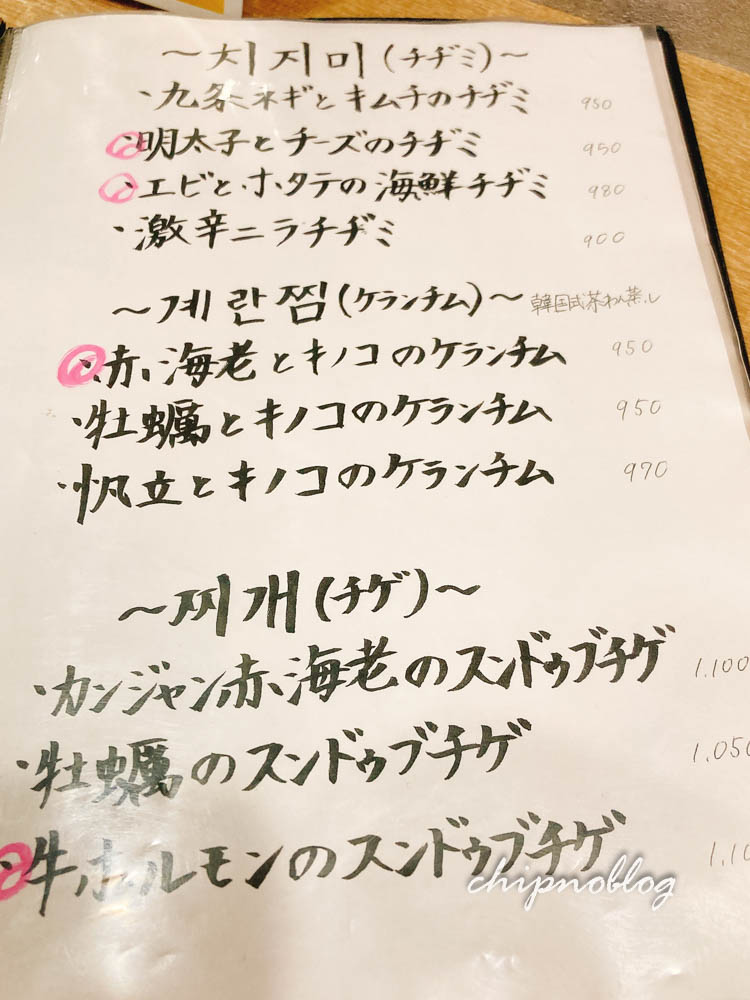 ～치지미(チヂミ)～
・九条ネギとキムチのチヂミ 950
・明太子とチーズのチヂミ 950
・エビとホタテの海鮮チヂミ 980
・激辛ニラチヂミ 900
～계란찜(ケランチム)～ 韓国式茶わん蒸し
・赤海老とキノコのケランチム 950
・牡蠣とキノコのケランチム 950
・帆立とキノコのケランチム 970
～찌개(チゲ)～
・カンジャン赤海老のスンドゥブチゲ 1.100
・牡蠣のスンドゥブチゲ 1.050
・牛ホルモンのスンドゥブチゲ 1.10
chipnoblog